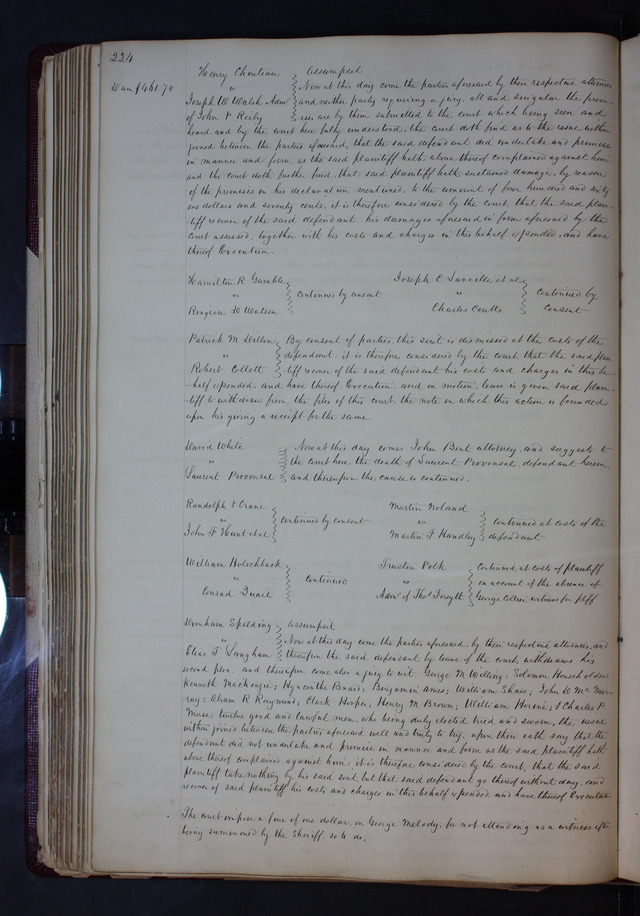 224
Henry Chouteau } Assumpsit
Dam $461.70 " } Now at this day come the parties aforesaid by their respective attornies
Joseph W Walsh Adm } and neither party requiring a jury, all and singular the prem-
of John P Reily } ises are by them submitted to the court which being seen and
heard and by the court here fully understood, the court doth find as to the issue within
joined between the parties aforesaid, that the said defendant did undertake and promise
in manner and form, as the said plaintiff hath above thereof complained against him
and the court doth further find that said plaintiff hath sustained damage, by reason
of the premises in his declaration mentioned, to the amount of four hundred and sixty
one dollars and seventy cents, it is therefore considered by the court, that the said plain-
tiff recover of the said defendant, his damages aforesaid in form aforesaid by the
court assessed, together with his costs and charges in this behalf expended, and have
thereof Execution.
Hamilton R Gamble } Joseph C Laveille et al }
" } continued by consent " } continued by
Ringrose D Watson } Charles Coutts } consent
Patrick M Dillon } By consent of parties, this suit is dismissed at the costs of the
" } defendant, it is therefore considered by the court that the said plain
Robert Collett } tiff recover of the said defendant his costs and charges in this be
-half expended, and have thereof Execution, and on motion, leave is given said plain-
-tiff to withdraw from the files of this court, the note on which this action is founded
upon his giving a receipt for the same
David White } Now at this day comes John Bent attorney, and suggests to
" } the court here the death of Laurent Provensal, defendant herein,
Laurent Provensal } and thereupon the cause is continued.
Randolph & Crane } Martin Noland }
" } continued by consent vs } continued at costs of the
John F Hunt et al } Martin F Handley } defendant
William Holschback } Trusten Polk } continued at costs of plaintiff
" } continued " } on account of the absence of
Conrad } Adm of Thos Forsyth } George Collier witness for plff
Wernham Spalding } Assumpsit
" } Now at this day come the parties aforesaid, by their respective attornies, and
Elias T Langham } thereupon the said defendant by leave of the court, withdraws his
second plea, and thereupon come also a jury to wit George M Welling; Solomon Householder
Kenneth Mackenzie; Hyacinthe Renard; Benjamin Ames; William Shaw; John D McMur-
ray; Abram R Raymond; Clark Hooper; Henry M Brown; William Horine; & Charles P
Morse; twelve good and lawful men, who being duly elected tried and sworn, the issue
within joined between the parties aforesaid well and truly to try, upon their oath say that the
defendant did not undertake and promise in manner and form as the said plaintiff hath
above thereof complained against him; it is therefore considered by the court, that the said
plaintiff take nothing by his said suit, but that said defendant go thereof without day, and
recover of said plaintiff his costs and charges in this behalf expended, and have thereof Execution
The court impose a fine of one dollar, on George Melody, for not attending as a witness after
being summoned by the Sheriff, so to do,